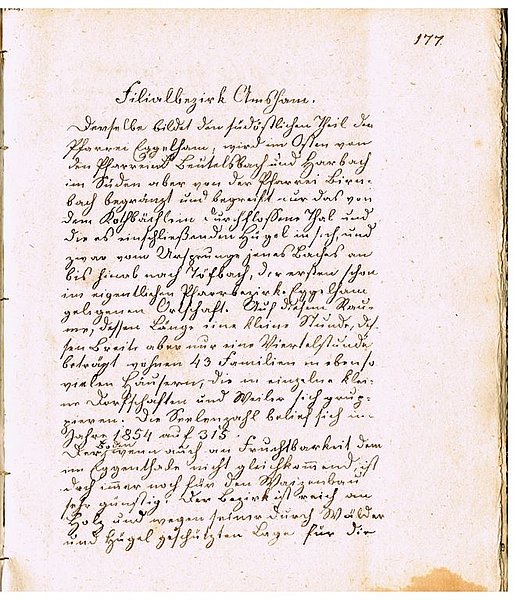 177.
Filialbezirk Amsham.
Derselbe bildet den südöstlichen Theil der
Pfarrei Eggelham; wird im Osten von
den Pfarreien Beutelsbach und Harbach
im Süden aber von der Pfarrei Birn-
bach begränzt und begreift nur das von
dem Kothbächlein durchflossene Thal und
die es einschließenden Hügel in sich und
zwar vom Ursprunge jenes Baches an
bis hinab nach Töfbach, der ersten schon
im eigentlichen Pfarrbezirke Eggelham
gelegenen Ortschaft. Auf diesem Rau-
me, dessen Länge eine kleine Stunde, des-
sen Breite aber nur eine Viertelstunde
beträgt wohnen 43 Familien in ebenso
vielen Häusern, die in einzelne klei-
ne Dorfschaften und Weiler sich grup-
pieren. Die Seelenzahl belief sich im
Jahre 1854 auf 315.
Der Boden wenn auch an Fruchtbarkeit dem
im Eggenthale nicht gleichkommend, ist
doch immer noch für den Waizenbau
sehr günstig. Der Bezirk ist reich an
Holz und wegen seiner durch Wälder
und Hügel geschützten Lage für die